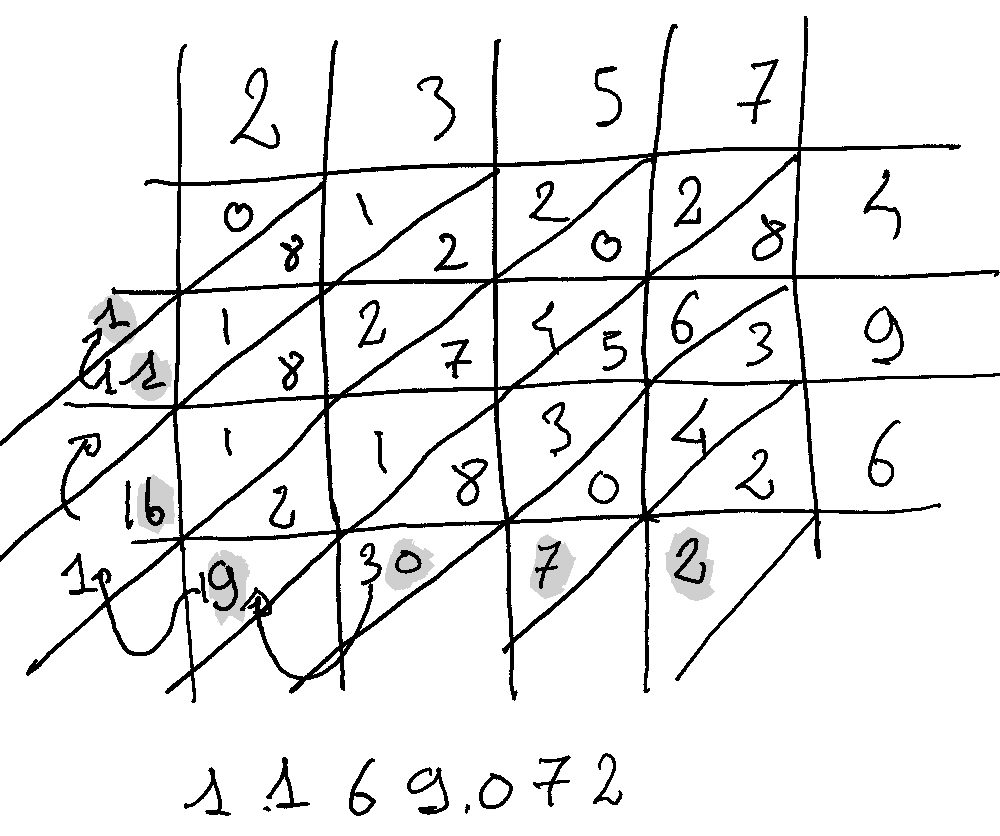 2 3 5 7
0 8 1 2 2 0 2 8 4
1 11 1 8 2 7 4 5 6 3 9
16 1 2 1 8 3 0 4 2 6
1 19 30 7 2
1.169.072